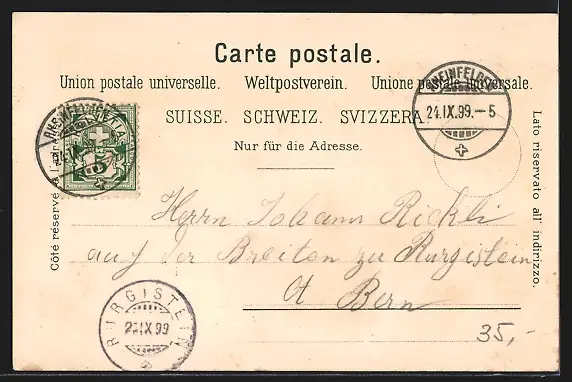 Carte postale.
Union postale universelle. Weltpostverein. Unione postale universale.
SUISSE. SCHWEIZ. SVIZZERA
Nur für die Adresse.
RHEINFELDEN
24.IX.99.–5
Côté réservé à l'adresse
Lato riservato all' indirizzo.
Herrn Johann Rickli
auf der Breiten zu Burgistein
Ct Bern
35,-
BURGISTEIN
IX 99